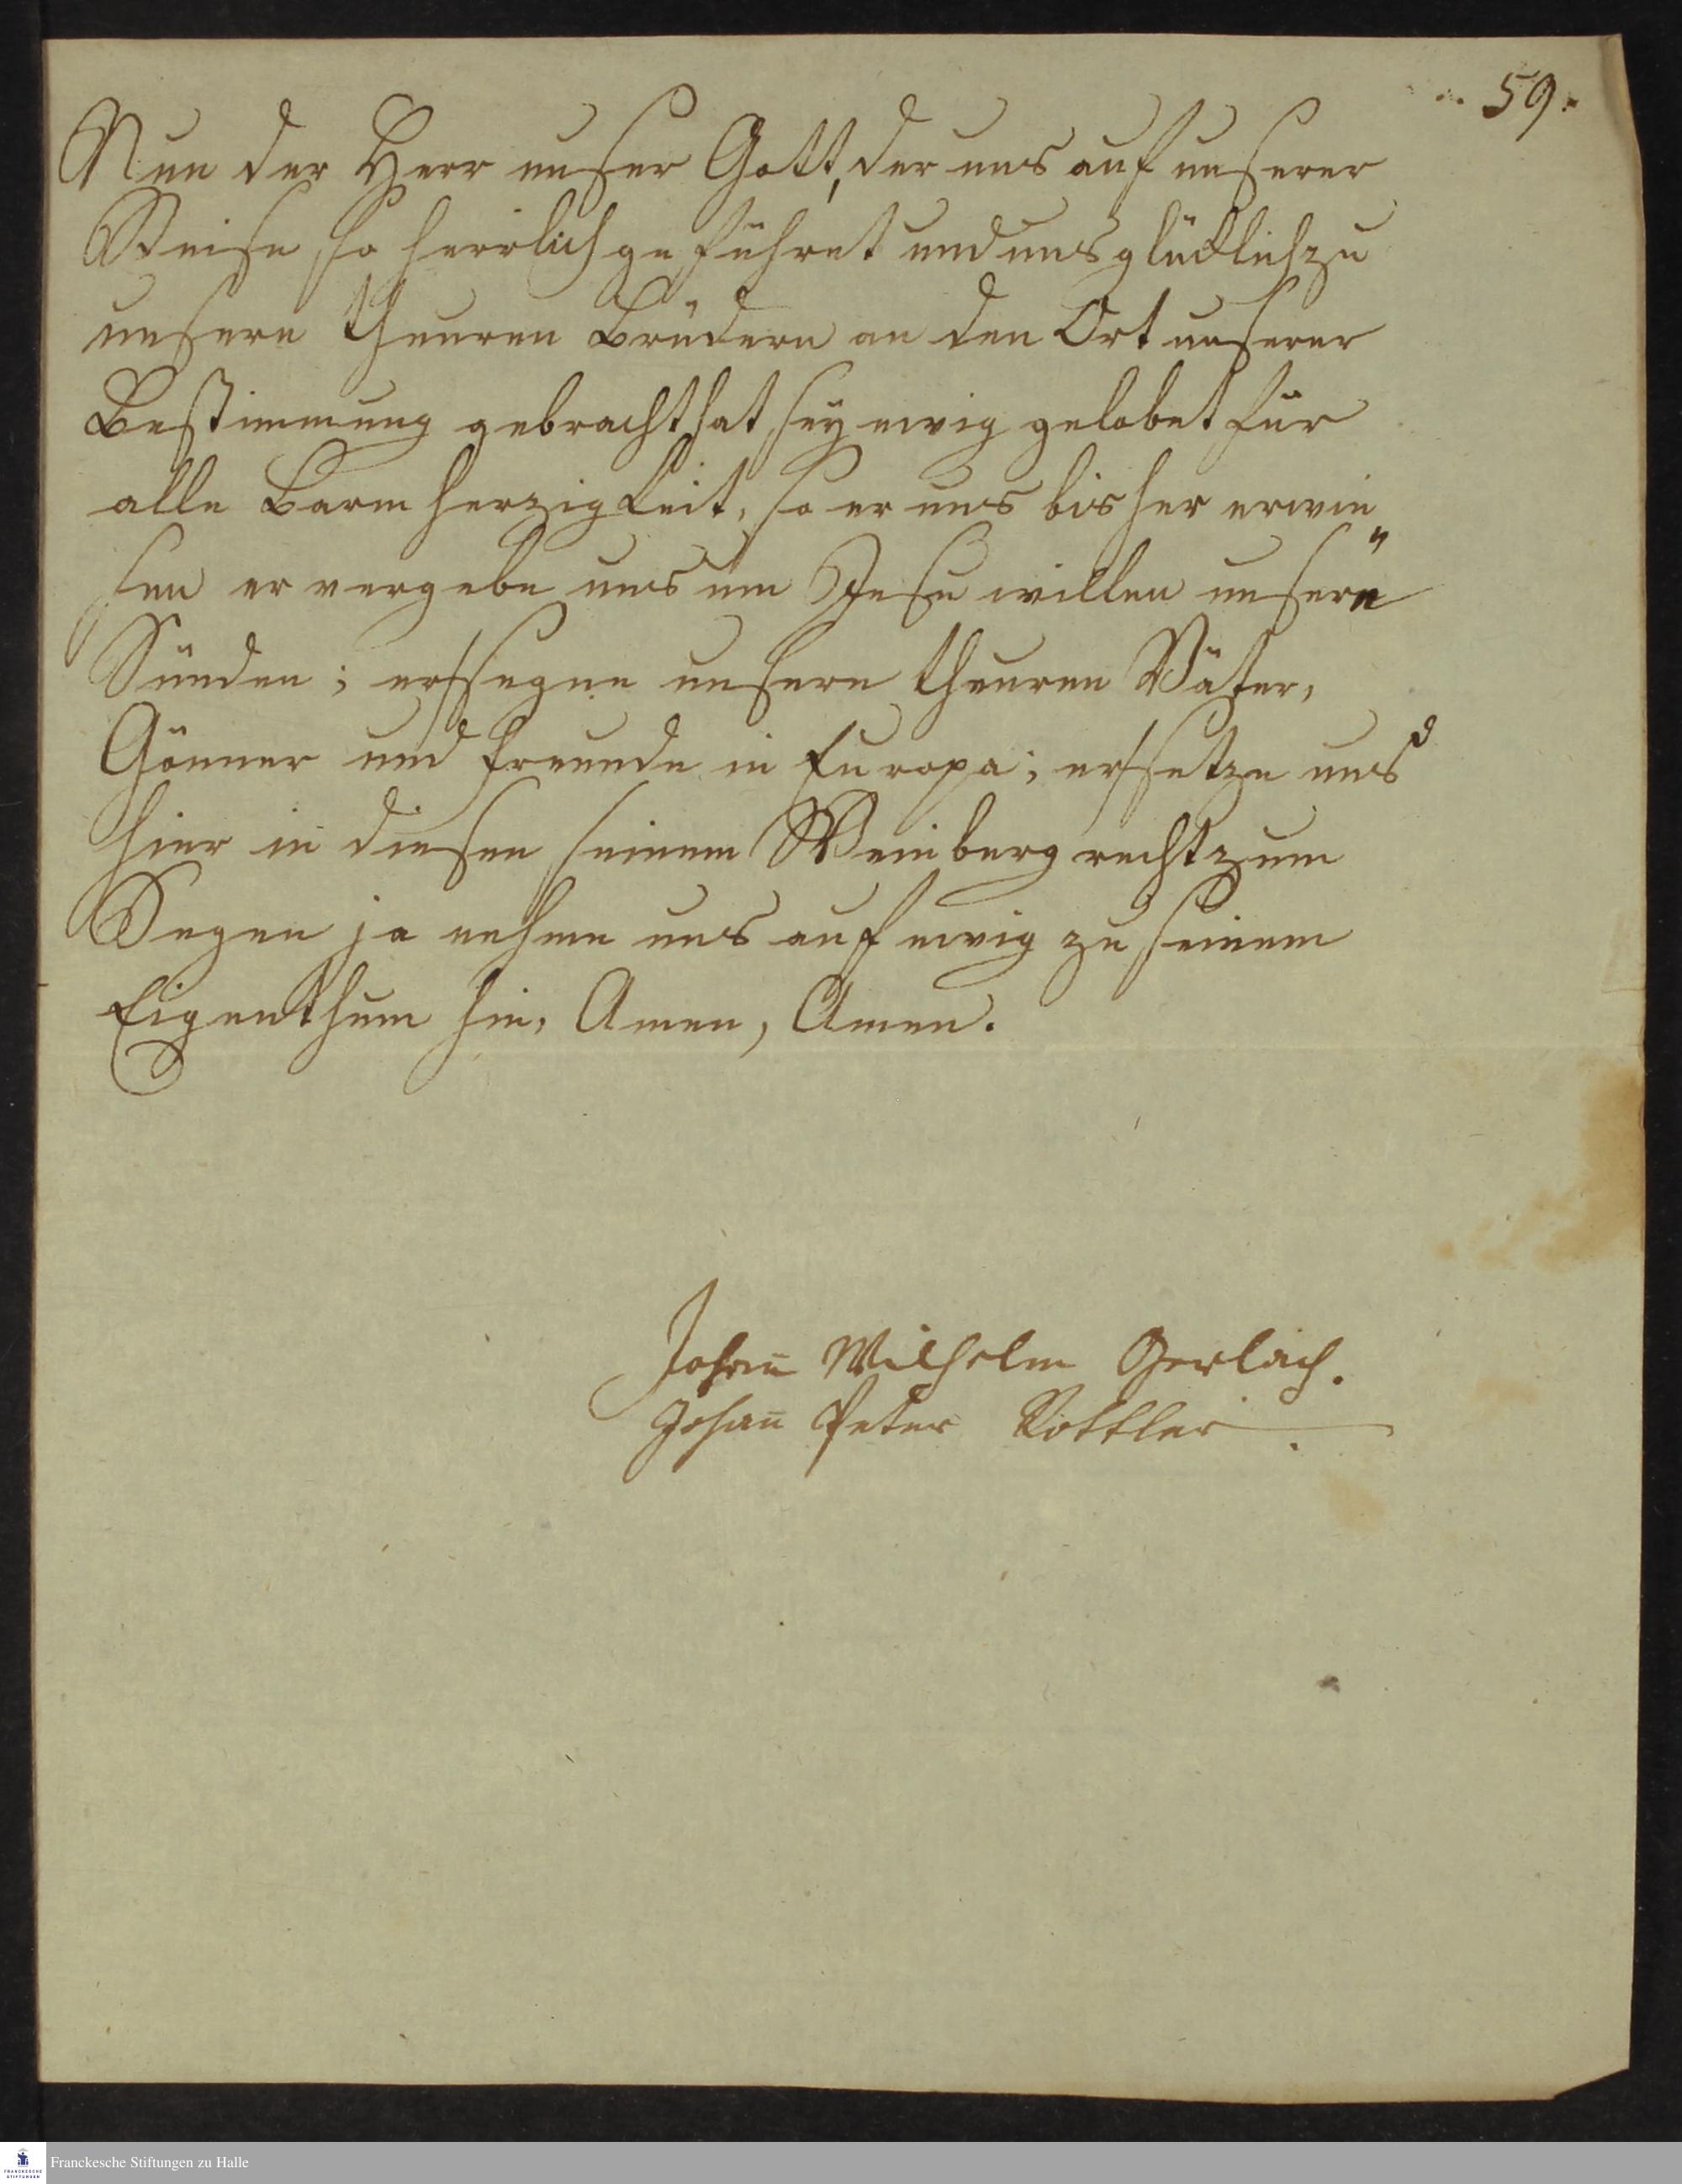 59.
Nun der Herr unser Gott, der uns auf unserer
Reise so herrlich geführet und uns glücklich zu
unsern theuren Brüdern an den Ort unserer
Bestimmung gebracht hat, sey ewig gelobet für
alle Barmherzigkeit, so er uns bisher erwie„
sen er vergebe uns um Jesu willen unsere
Sünden; er segne unsern theuren Väter,
Gönner und Freunde in Europa; er setze uns
hier in diesen seinem Weinberg recht zum
Segen ja nehme uns auf ewig zu seinem
Eigenthum hin, Amen, Amen.
Johan̄ Wilhelm Gerlach.
Johan̄ Peter Rottler.
Franckesche Stiftungen zu Halle
FRANCKESCHE
STIFTUNGEN